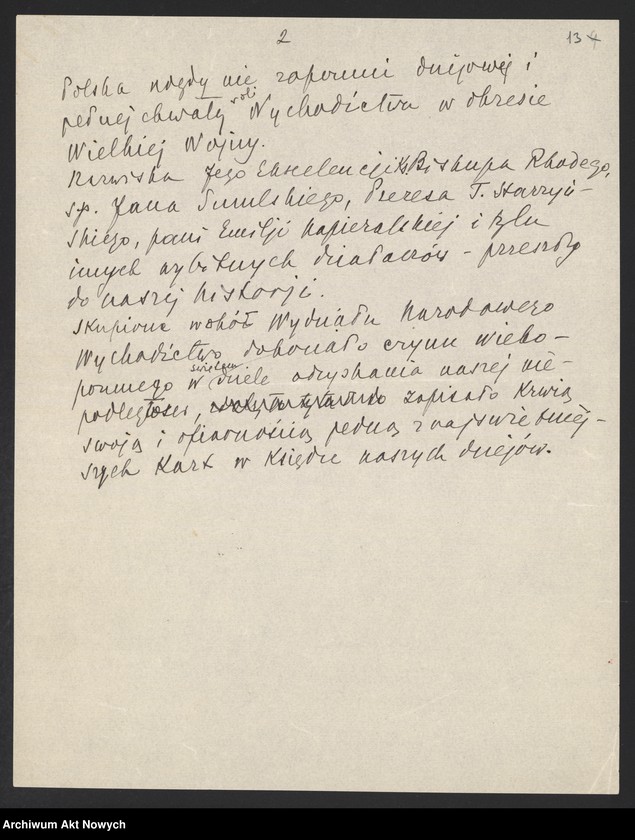 2
13
Polska nigdy nie zapomni dziejowej i
pełnej chwały roli Wychodźctwa w okresie
Wielkiej Wojny.
Nazwiska Jego Ekscelencji Ks. Biskupa Rhodego,
s.p. Jana Smulskiego, Prezesa T. Starzyń-
skiego, pani Emilji Napieralskiej i tylu
innych wybitnych działaczów - przeszły
do naszej historji.
Skupione wokół Wydziału Narodowego
Wychodźctwo dokonało czynu wieko-
pomnego w świętem dziele odzyskania naszej nie-
podległości, zapisało krwią
swoją i ofiarnością jedną z najświetniej-
szych kart w Księdze naszych dziejów.
Archiwum Akt Nowych